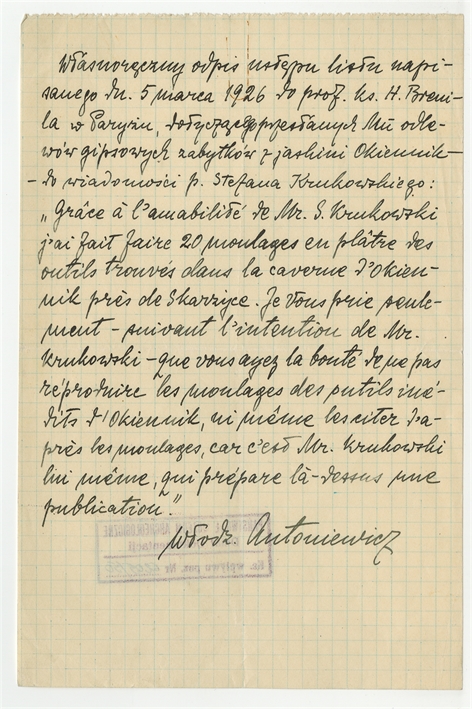 Własnoręczny odpis ustępu listu napi-
sanego dn. 5 marca 1926 do prof. ks. H. Breui-
la w Paryżu, dotyczącego przesłanych Mu odle-
wów gipsowych zabytków z jaskini Okiennik -
- do wiadomości p. Stefana Krukowskiego:
„Grâce à l'amabilité de Mr. S. Krukowski
j'ai fait faire 20 moulages en plâtre des
outils trouvés dans la caverne d'Okien-
nik près de Skarżyce. Je Vous prie seule-
ment - suivant l'intention de Mr.
Krukowski - que vous ayez la bonté de ne pas
réproduire les moulages des outils iné-
dits d'Okiennik, ni même les citer d'a-
près les moulages, car c'est Mr. Krukowski
lui même, qui prépare là-dessus une
publication."
Włodz. Antoniewicz